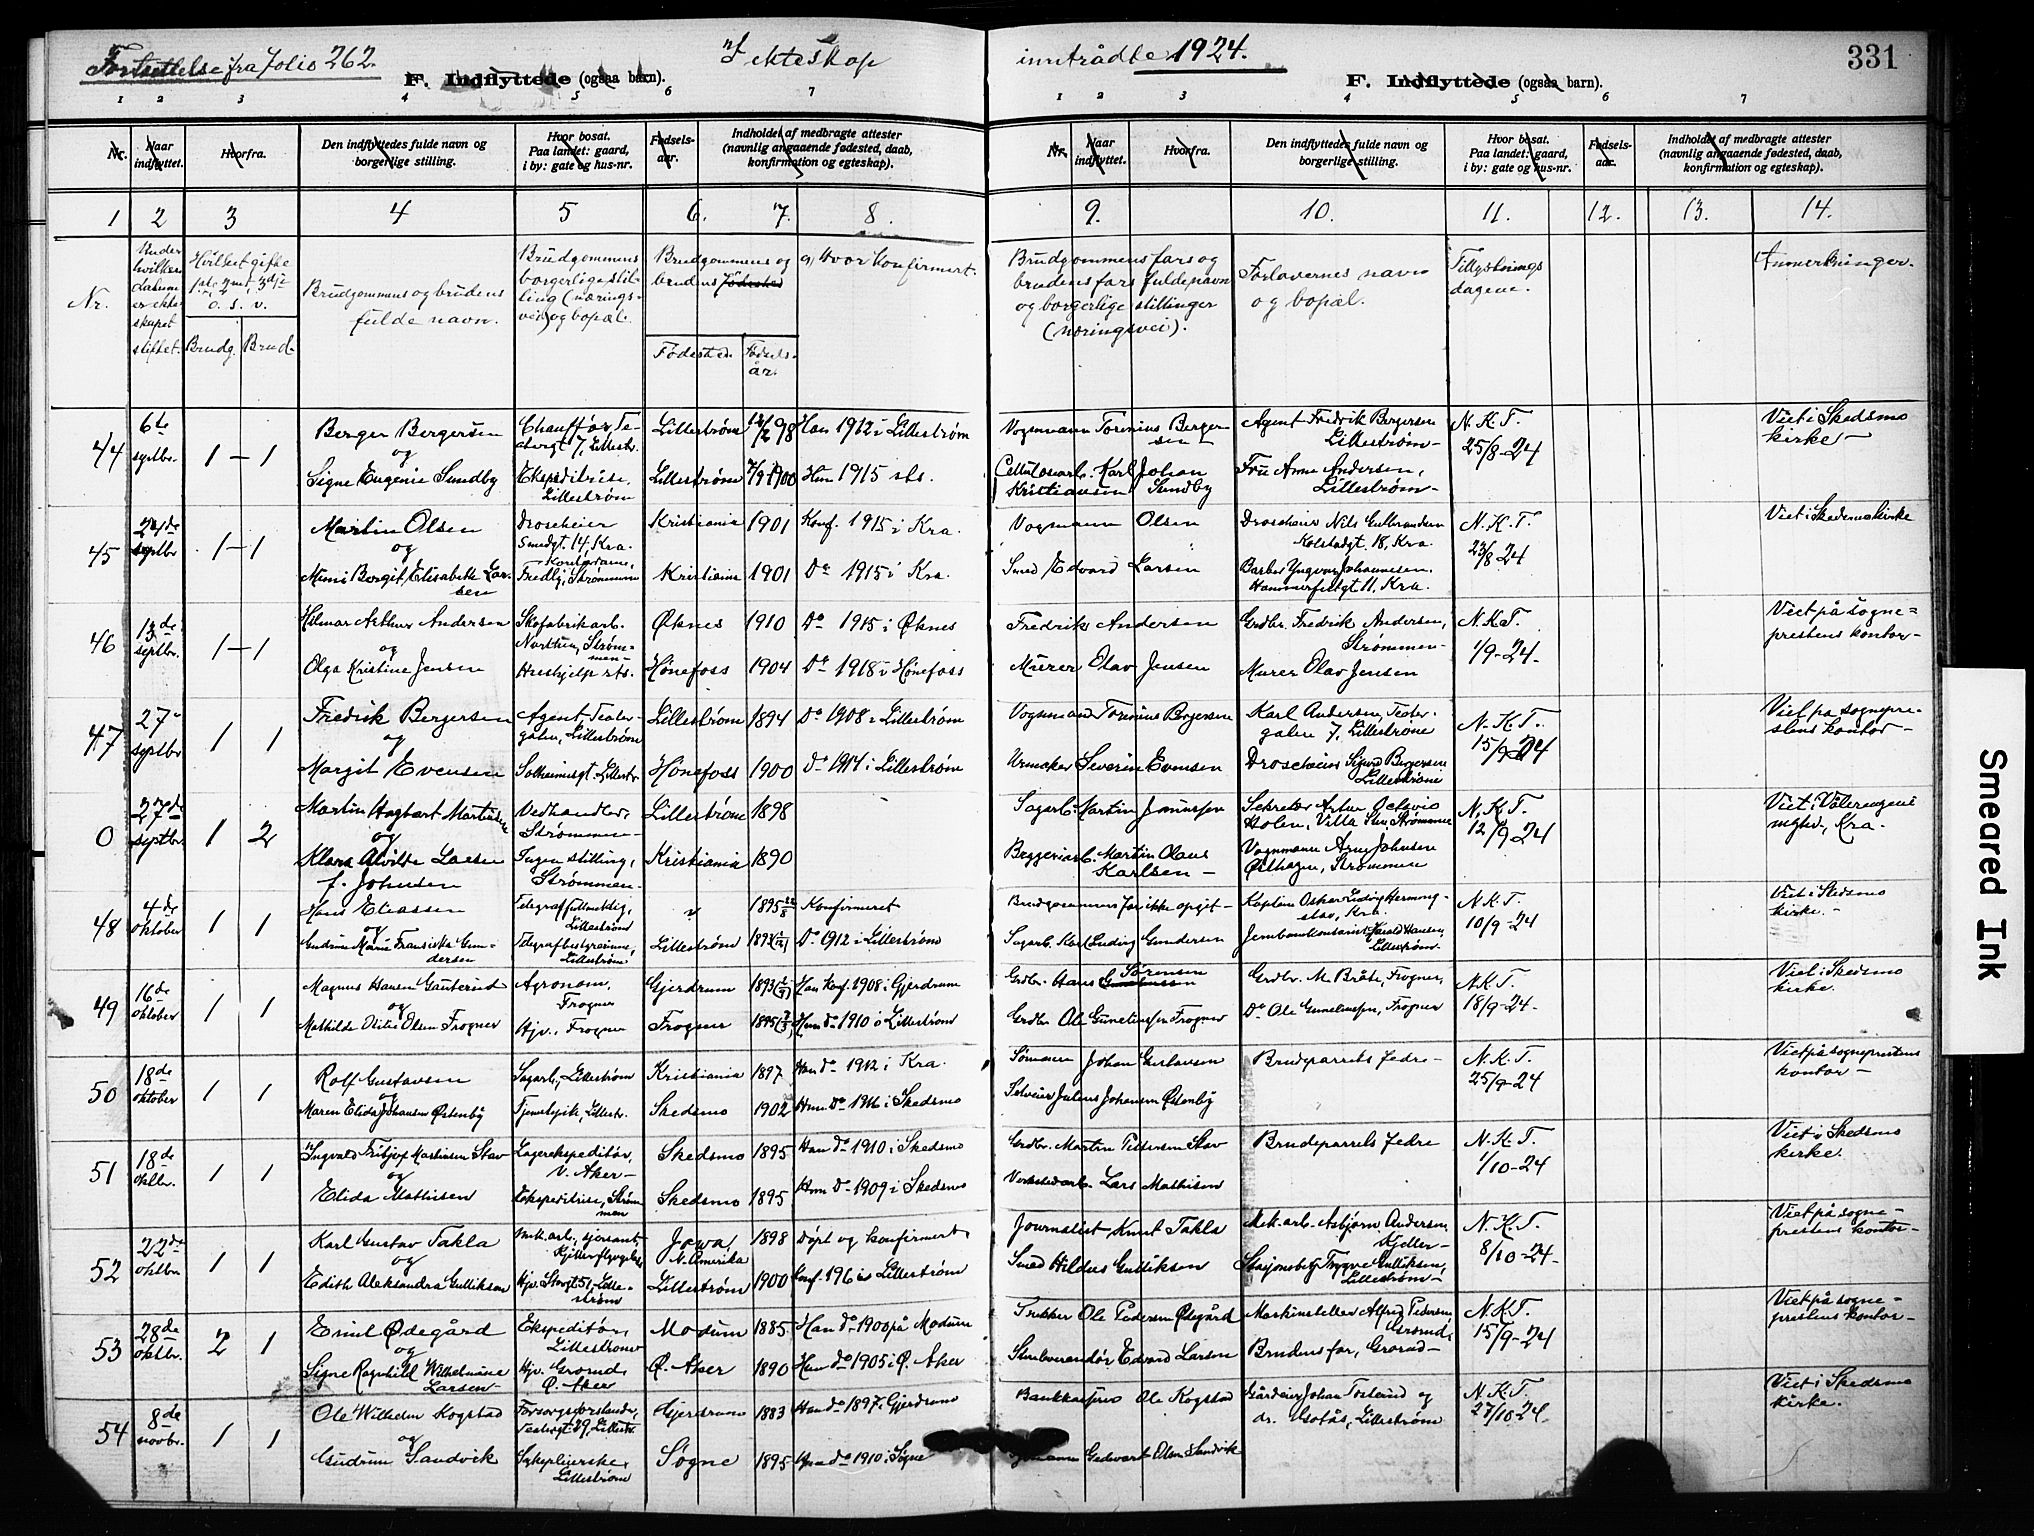 Fortsettelse fra folio 262.
Ekteskap
inntrådte 1924.
331
F. Indflyttede (ogsaa barn).
F. Indflyttede (ogsaa barn).
1 2 3 4 5 6 7
1 2 3 4 5 6 7
Nr.
Naar indflyttet.
Hvorfra.
Den indflyttedes fulde navn og borgerlige stilling.
Hvor bosat.
Paa landet: gaard,
i by: gate og hus-nr.
Fødsels-aar.
Indholdet af medbragte attester
(navnlig angaaende fødested, daab,
konfirmation og egteskap).
Nr.
Naar indflyttet.
Hvorfra.
Den indflyttedes fulde navn og borgerlige stilling.
Hvor bosat.
Paa landet: gaard,
i by: gate og hus-nr.
Fødsels-aar.
Indholdet af medbragte attester
(navnlig angaaende fødested, daab,
konfirmation og egteskap).
1 2 3 4 5 6. 7. 8.
9. 10. 11. 12. 13. 14.
Nr.
Under hvilken datum er ekteskapet stiftet.
Hvilket gifte 1ste, 2net, 3dje o. s. v.
Brudg. Brud.
Brudgommens og brudens fulde navn.
Brudgommens borgerlige stilling (næringsvei) og bopæl.
Brudgommens og brudens Fødested
Fødested Fødsels-år.
a) Hvor konfirmert.
Brudgommens fars og
brudens fars fulde navn
og borgerlige stillinger
(næringsvei).
Forlovernes navn
og bopæl.
Tillysningsdagene.
Anmerkninger.
44 6te septbr. 1 – 1
Berger Bergersen
og
Signe Eugenie Sundby
Chauffør, Teatergt 7, Lillestr.
Ekspeditrise, Lillestrøm
Lillestrøm 12/2 98 Han 1912 i Lillestrøm
Lillestrøm 7/9 1900 Hun 1915 sts.
Vognmann Torinius Bergersen
Cellulosearb. Karl Johan Kristiansen Sundby
Agent Fredrik Bergersen Lillestrøm –
Fru Anna Andersen, Lillestrøm –
N.K.T. 25/8-24
Viet i Skedsmo kirke –
45 24de septbr 1 – 1
Martin Olsen
og
Mimi Borgit Elisabeth Larsen
Droscheier Smedgt. 14, Kra.
Kontordame, Fredly, Strømmen
Kristiania 1901 Konf. 1915 i Kra.
Kristiania 1901 Do 1915 i Kra.
Vogmann Olsen
Smed Edvard Larsen
Droscheier Nils Gulbrandsen Kolstadgt. 18, Kra.
Barber Yngvar Johannesen, Hammerfestgt 11, Kra.
N.K.T. 23/8-24
Viet i Skedsmo kirke
46 13de septbr. 1 – 1
Hilmar Arthur Andersen
og
Olga Kristine Jensen
Skofabrikarb. Strømmen –
Hushjelp sts.
Øknes 1910 Do 1915 i Øknes
Hönefoss 1904 Do 1918 i Hönefoss
Fredrik Andersen
Murer Olav Jensen
Grdbr. Fredrik Andersen, Strømmen –
Murer Olav Jensen
N.K.T. 1/9-24.
Viet på sogneprestens kontor –
47 27 septbr 1 1
Fredrik Bergersen
og
Margit Evensen
Agent, Teatergaten, Lillestrøm
Solheimsgt. Lillestr.
Lillestrøm 1894 Do 1908 i Lillestrøm
Hönefoss 1900 Do 1914 i Lillestrøm
Vognmand Torinius Bergersen
Urmaker Severin Evensen
Karl Andersen, Teatergaten 7, Lillestrøm
Droscheier Sigurd Bergersen Lillestrøm
N.K.T. 15/9-24
Viet på sogneprestens kontor –
0 27de septbr 1 2
Martin Hagbart Martinsen
og
Klara Alvilde Larsen f. Johnsen
Vedhandler, Strømmen –
Ingen stilling, Strømmen –
Lillestrøm 1898
Kristiania 1890
Sagarb. Martin
Bryggeriarb. Martin Olaus Karlsen –
Sekretær Artur Octavio Holen, Villa Strømmen
Vognmann Arne Johnsen Østhagen, Strømmen
N.K.T. 12/9-24
Viet i Vålerengens mghd., Kra.
48 4de oktober 1 1
Hans Eliassen
og
Gudrun Marie Fransiska Gundersen
Telegraffullmektig, Lillestrøm
Telegrafbestyrerinne, Lillestrøm
1895 22/8 Konfirmeret
Lillestrøm Do 1912 i Lillestrøm
Brudgommens far ikke opgit –
Sagarb. Karl Ludvig Gundersen
Kaptein Oskar Ludvig Kra.
Harald Hansen, Lillestrøm.
N.K.T. 10/9-24
Viet i Skedsmo kirke. –
49 16de oktober 1 1
Magnus Hansen Gauterud
og
Mathilde Otilie Olsen Frogner
Agronom, Frogner
Hjv., Frogner
Gjerdrum 1893 Han konf. 1908 i Gjerdrum
Frogner 1895 Hun do 1910 i Lillestrøm
Grdbr. Hans Sørensen
Grdbr. Ole Frogner
Grdbr. M. Bråte, Frogner,
Do Ole Frogner
N.K.T. 18/9-24.
Viet i Skedsmo kirke.
50 18de oktober 1 1
Rolf Gustavsen
og
Maren Elida Johansen Østenby
Sagarb., Lillestrøm
Tjenstpik, Lillestr.
Kristiania 1897 Han do 1912 i Kra.
Skedsmo 1902 Hun Do 1916 i Skedsmo
Sømann Johan Gustavsen
Selveier Julius Johansen Østenby
Brudeparrets fedre –
N.K.T. 25/9-24
Viet på sogneprestens kontor –
51 18de oktbr. 1 1
Ingvald Fritjof Martinsen Stav
og
Elida Mathisen
Lagerekspeditør, V. Aker –
Ekspeditrise, Strømmen
Skedsmo 1895 Han do 1910 i Skedsmo
Skedsmo 1895 Hun do 1909 i Skedsmo
Grdbr. Martin Pettersen Stav
Verkstedarb. Lars Mathisen
Brudeparrets fedre
N.K.T. 1/10-24
Viet i Skedsmo kirke.
52 22de oktbr. 1 1
Karl Gustav Takla
og
Edith Aleksandra Gulliksen
Mek.arb., Kjeller flyveplass
Hjv. Storgt 51, Lillestrøm
Jowa, N. Amerika 1898 Døpt og konfirmert
Lillestrøm 1900 konf. 196 i Lillestrøm
Journalist Knut Takla
Smed Hildus Gulliksen
Mek.arb. Asbjørn Andersen, Kjeller –
Stasjonsbetj. Trygve Gulliksen, Lillestrøm –
N.K.T. 8/10-24.
Viet på sogneprestens kontor –
53 28de oktbr. 2 1
Emil Ødegård
og
Signe Ragnhild Wilhelmine Larsen
Ekspeditør, Lillestrøm
Hjv. Grorud, Ø. Aker
Modum 1885 Han do 1900 på Modum
Ø. Aker 1890 Hun do 1905 i Ø. Aker
Snekker Ole Pedersen Ødegård
Edvard Larsen
Maskinsetter Alfred Pedersen, Grorud,
Brudens far, Grorud –
N.K.T. 15/9-24
Viet på sogneprestens kontor –
54 8de novbr. 1 1
Ole Wilhelm Kogstad
og
Gudrun Sandvik
Forsorgsforstander, Teatergt 29, Lillestr.
Sykepleierske, Lillestrøm
Gjerdrum 1883 Han do 1897 i Gjerdrum
Søgne 1895 Hun do 1910 i Søgne
Bankkasserer Ole Kogstad
Gedevart Olsen Sandvik
Gårdeier Johan og
dr. Lillestrøm
N.K.T. 27/10-24.
Viet i Skedsmo kirke.
Smeared Ink